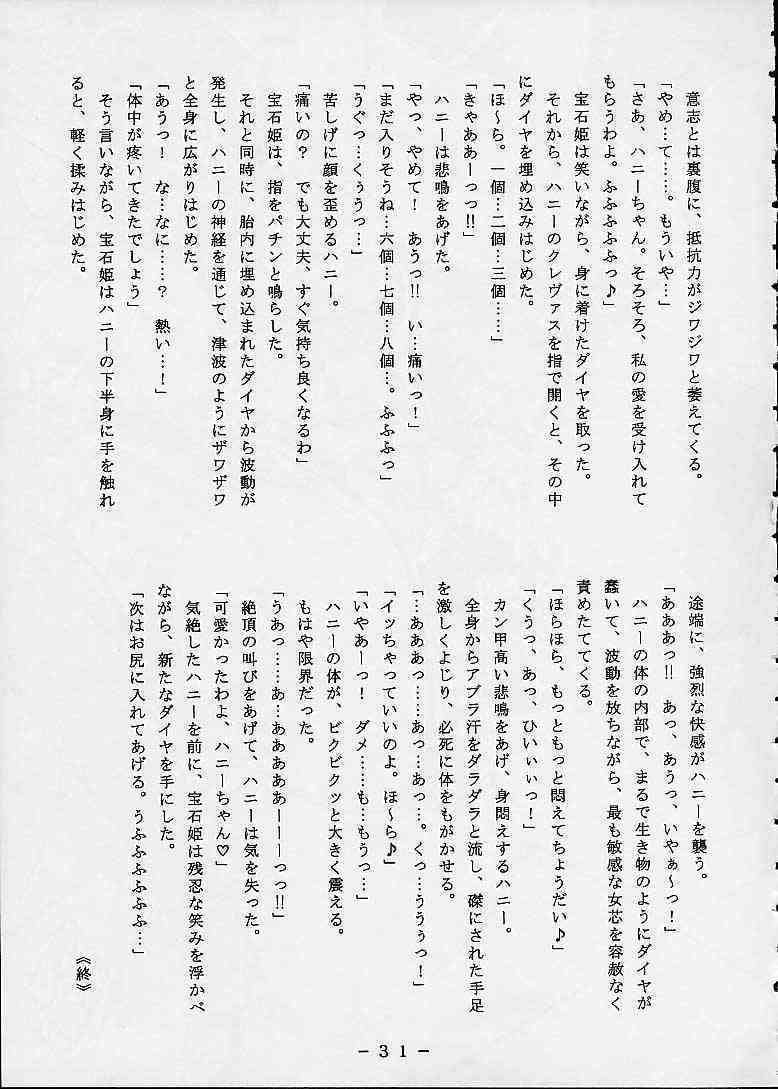 意志とは裏腹に、抵抗力がジワジワと萎えてくる。
「やめ…て……。もういや…」
「さあ、ハニーちゃん。そろそろ、私の愛を受け入れて
もらうわよ。ふふふふふっ♪」
宝石姫は笑いながら、身に着けたダイヤを取った。
それから、ハニーのクレヴァスを指で開くと、その中
にダイヤを埋め込みはじめた。
「ほ〜ら。一個…二個…三個……」
「きゃああーっっ!!」
ハニーは悲鳴をあげた。
「やっ、やめて！　あうっ!!　い…痛いっ！」
「まだ入りそうね…六個…七個…八個…。ふふふっ」
「うぐっ…くぅうっ…」
苦しげに顔を歪めるハニー。
「痛いの？　でも大丈夫、すぐ気持ち良くなるわ」
宝石姫は、指をパチンと鳴らした。
それと同時に、胎内に埋め込まれたダイヤから波動が
発生し、ハニーの神経を通じて、津波のようにザワザワ
と全身に広がりはじめた。
「あうっ！　な…なに……？　熱い…！」
「体中が疼いてきたでしょう」
そう言いながら、宝石姫はハニーの下半身に手を触れ
ると、軽く揉みはじめた。
途端に、強烈な快感がハニーを襲う。
「あああっ!!　あっ、あうっ、いやぁ〜っ！」
ハニーの体の内部で、まるで生き物のようにダイヤが
蠢いて、波動を放ちながら、最も敏感な女芯を容赦なく
責めたててくる。
「ほらほら、もっともっと悶えてちょうだい♪」
「くうっ、あっ、ひいぃぃっ！」
カン甲高い悲鳴をあげ、身悶えするハニー。
全身からアブラ汗をダラダラと流し、磔にされた手足
を激しくよじり、必死に体をもがかせる。
「…あああっ……あっ…あっ…。くっ…うううぅっ！」
「イッちゃっていいのよ。ほ〜ら♪」
「いやあーっ！　ダメ……も…もうっ…」
ハニーの体が、ビクビクッと大きく震える。
もはや限界だった。
「うあっ……あ…あああああーーーっっ!!」
絶頂の叫びをあげて、ハニーは気を失った。
「可愛かったわよ、ハニーちゃん♡」
気絶したハニーを前に、宝石姫は残忍な笑みを浮かべ
ながら、新たなダイヤを手にした。
「次はお尻に入れてあげる。うふふふふふふ…」
《終》
－３１－